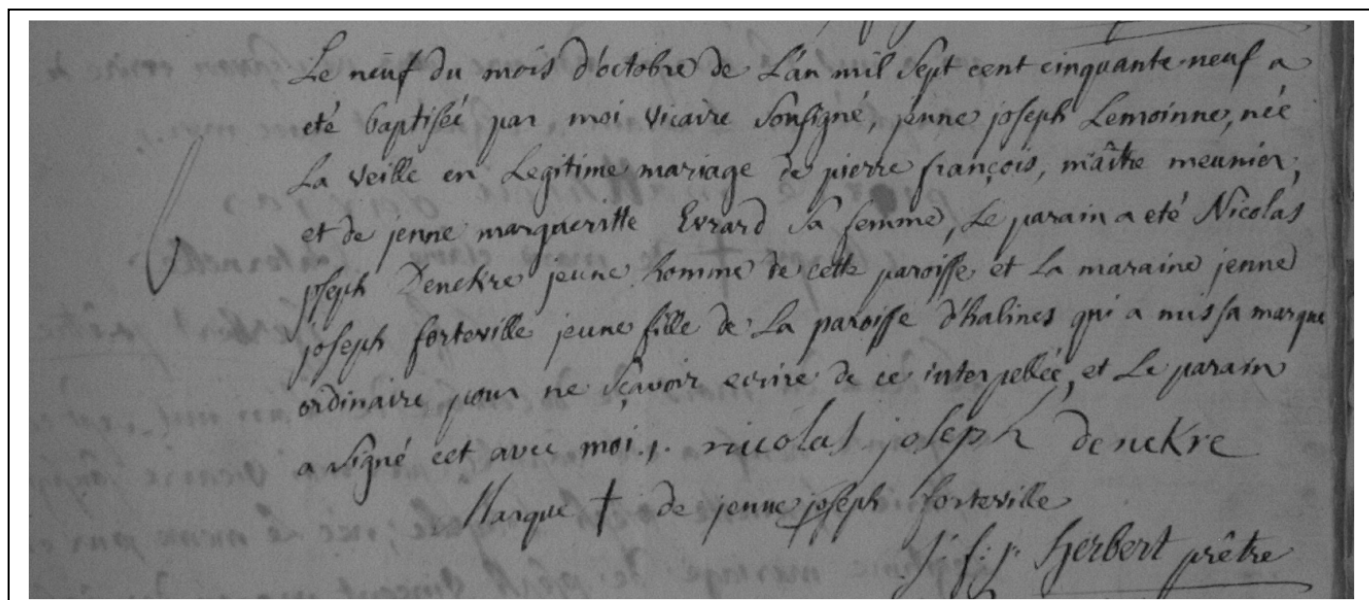 Le neuf du mois d'octobre de L'an mil Sept cent cinquante-neuf a
eté baptisée par moi vicaire Sousigné, jenne joseph Lemoinne, née
La veille en Legitime mariage de pierre françois, maître meunier,
et de jenne margueritte Evrard Sa femme, Le parain a eté Nicolas
joseph Denckre jeune homme de cette paroisse et La maraine jenne
joseph forteville jeune fille de La paroisse d'halines qui a mis sa marque
ordinaire pour ne sçavoir ecrire de ce interpellée, et Le parain
a signé cet avec moi. nicolas joseph denckre
Marque † de jenne joseph forteville
j: f: j: herbert prêtre